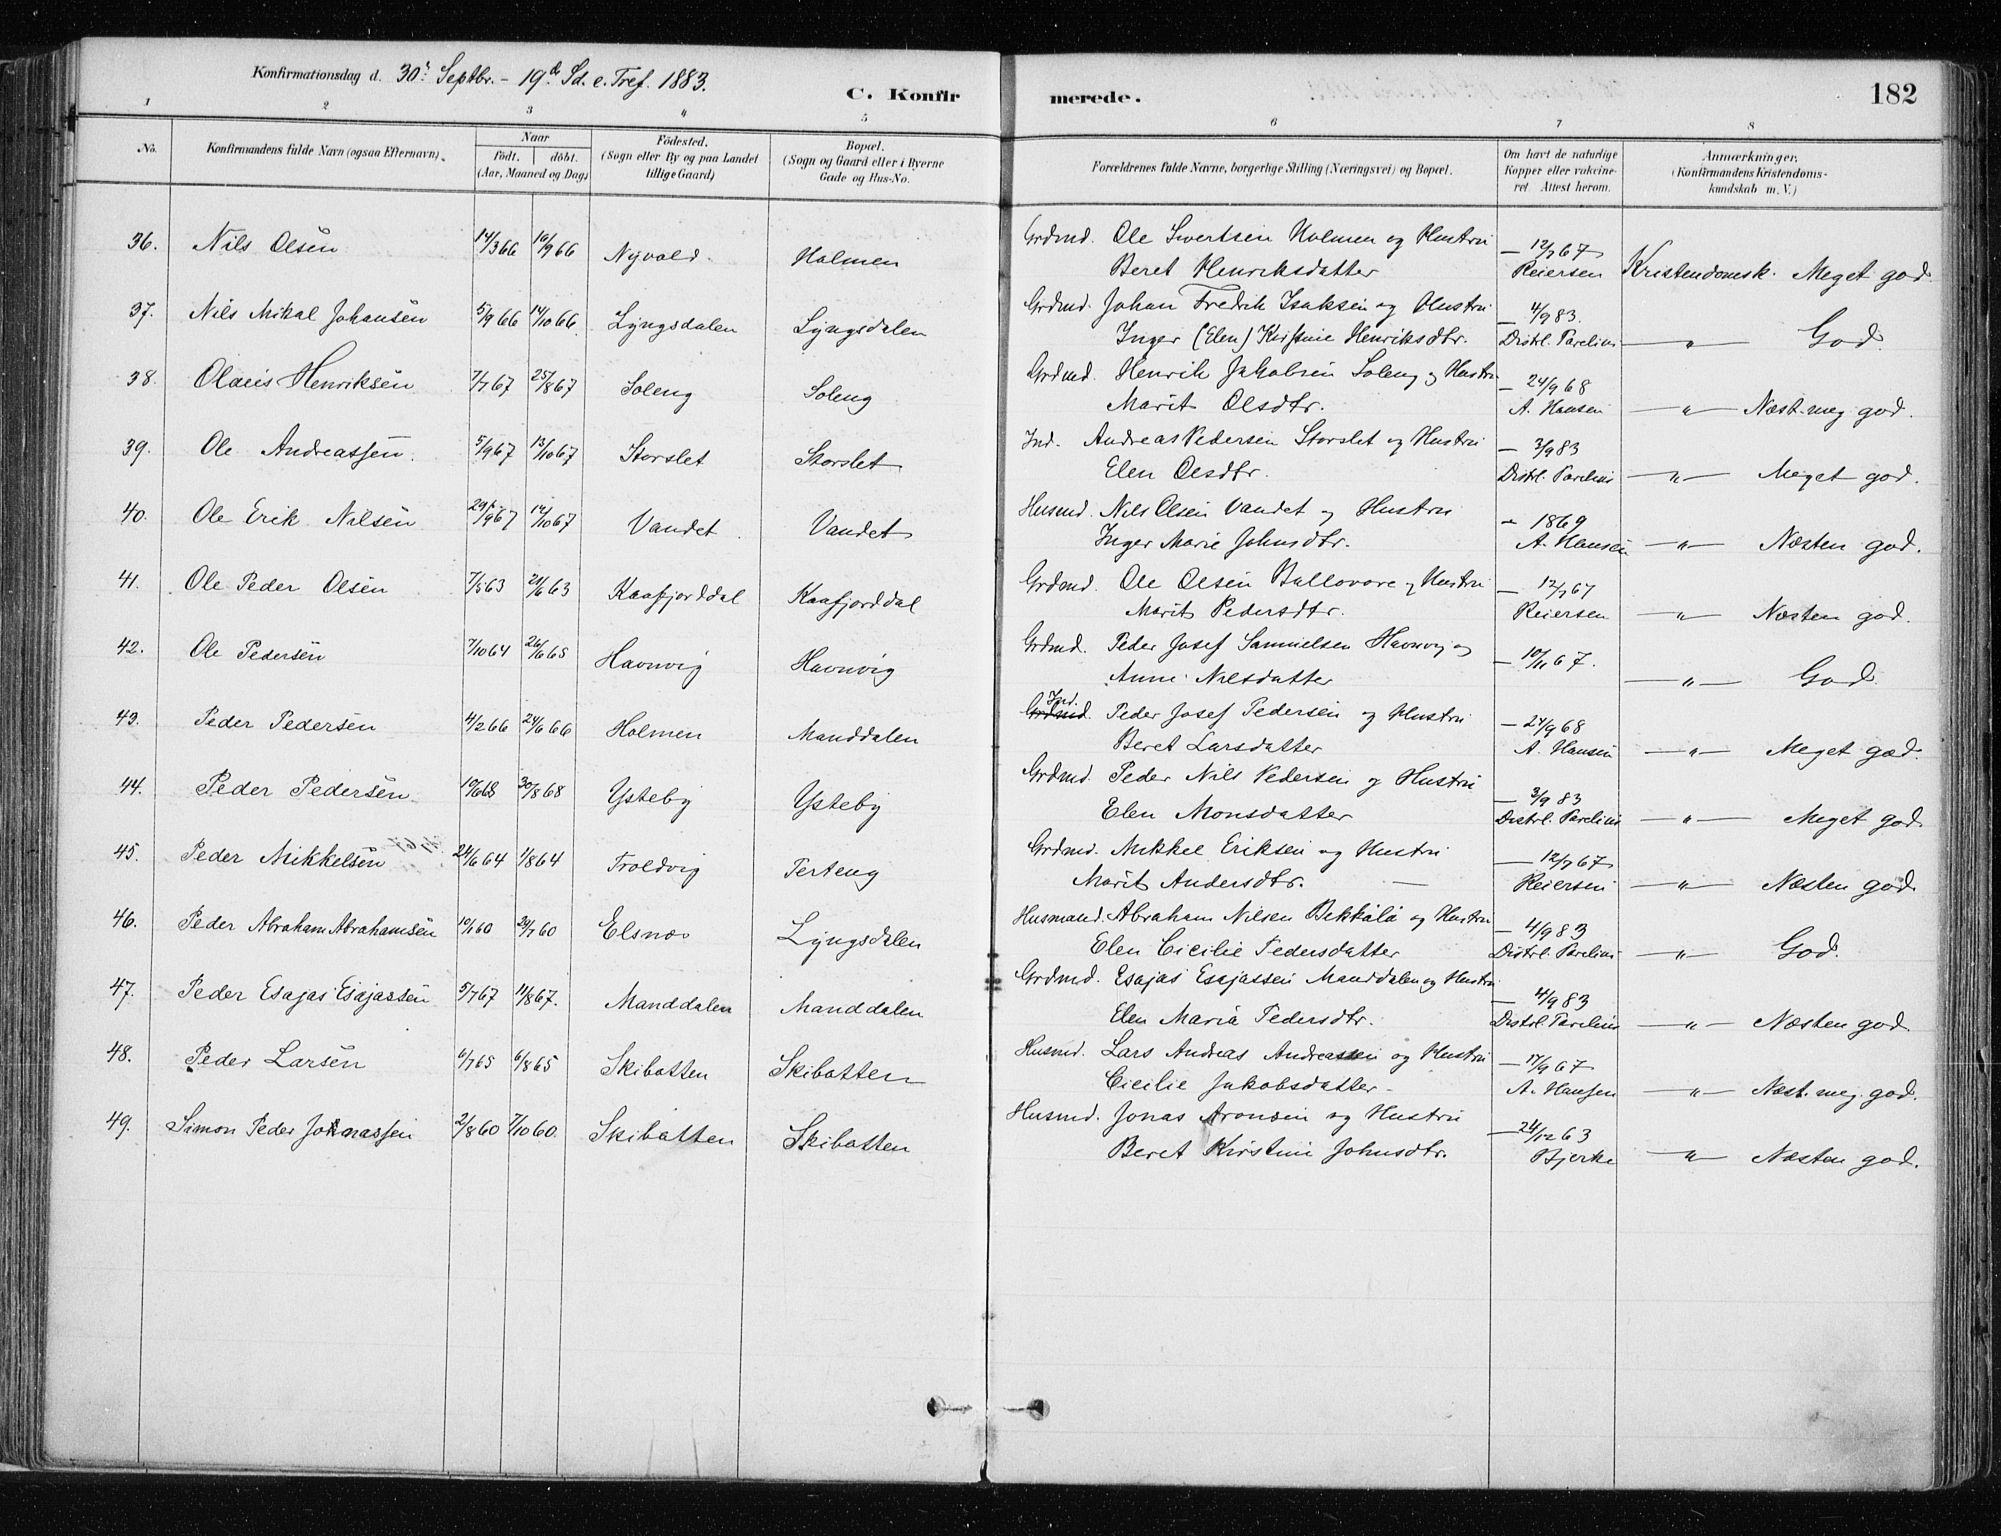 Konfirmationsdag d. 30te Septbr. - 19de Sd. e. Tref. 1883.
C. Konfir merede. 182
1 2 3 4 5 6 7 8
No. Konfirmandens fulde Navn (ogsaa Efternavn). Naar födt. döbt. (Aar, Maaned og Dag) Födested. (Sogn eller By og paa Landet tillige Gaard) Bopæl. (Sogn og Gaard eller i Byerne Gade og Hus-No. Forældrenes fulde Navne, borgerlige Stilling (Næringsvei) og Bopæl. Om havt de naturlige Kopper eller vakcineret Attest herom. Anmærkninger. (Konfirmandens Kristendomskundskab m. V.)
36. Nils Olsen 14/3 66 16/9 66 Nyvold. Holmen Grdmd. Ole Sivertsen Holmen og Hustru — 12/7 67
Beret Henriksdatter Reiersen Kristendomsk. Meget god
37. Nils Mikal Johansen 5/9 66 14/10 66 Lyngsdalen Lyngsdalen Grdmd. Johan Fredrik Isaksen og Hustru — 4/9 83.
Inger (Elen) Kirstine Henriksdtr. Distrl. Parelius —"— God.
38. Olaus Henriksen 7/7 67 25/8 67 Soleng Soleng Grdmd. Henrik Jakobsen Soleng og Hustru — 24/9 68
Marit Olsdtr. A. Hansen —"— Næst. meg god.
39. Ole Andreassen. 5/9 67 13/10 67 Storslet Storslet Ind. Andreas Pedersen Storslet og Hustru — 3/9 83
Elen Olsdtr. Distrl. Parelius —"— Meget god.
40. Ole Erik Nilsen 29/9 67 14/10 67 Vandet Vandet Husmd. Nils Olsen Vandet og Hustru — 1869
Inger Marie Johnsdtr. A. Hansen —"— Næsten god.
41. Ole Peder Olsen 7/5 63 21/6 63 Kaafjorddal Kaafjorddal Grdmd. Ole Olsen Ballovare og Hustru — 12/7 67
Marit Pedersdtr. Reiersen —"— Næsten god.
42. Ole Pedersen 7/10 64 26/6 65 Havnvig Havnvig Grdmd. Peder Josef Samuelsen Havnvig og — 10/11 67.
Anne Nilsdatter —"— God.
43. Peder Pedersen 4/2 66 24/6 66 Holmen Manddalen Grdmd. Ind. Peder Josef Pedersen og Hustru — 24/9 68
Beret Larsdatter A. Hansen —"— Meget god.
44. Peder Pedersen 19/6 68 30/8 68 Ysteby Ysteby Grdmd. Peder Nils Pedersen og Hustru — 3/9 83
Elen Monsdatter Distrl. Parelius —"— Meget god.
45. Peder Mikkelsen 24/6 64 1/8 64 Troldvig Terteng Grdmd. Mikkel Eriksen og Hustru — 12/7 67
Marit Andersdtr. — Reiersen —"— Næsten god
46. Peder Abraham Abrahamsen 10/1 60 29/7 60 Elsnæs Lyngsdalen Husmand. Abraham Nilsen Bekkälä og Hustru — 4/9 83
Elen Cicilie Pedersdatter Distrl. Parelius —"— God.
47. Peder Esajas Esajassen 5/7 67 11/8 67. Manddalen Manddalen Grdmd. Esajas Esajassen Manddalen og Hustru — 4/9 83
Elen Maria Pedersdtr. Distrl. Parelius —"— Næsten god
48. Peder Larsen 6/7 65 6/8 65 Skibotten Skibotten Husmd. Lars Andreas Andreassen og Hustru — 17/9 67
Cicilie Jakobsdatter - A. Hansen —"— Næst. meg. god.
49. Simon Peder Jonassen 2/8 60 7/10 60. Skibotten Skibotten Husmd. Jonas Aronsen og Hustru — 24/12 63
Beret Kirstine Johnsdtr. Bjerke —"— Næsten god.